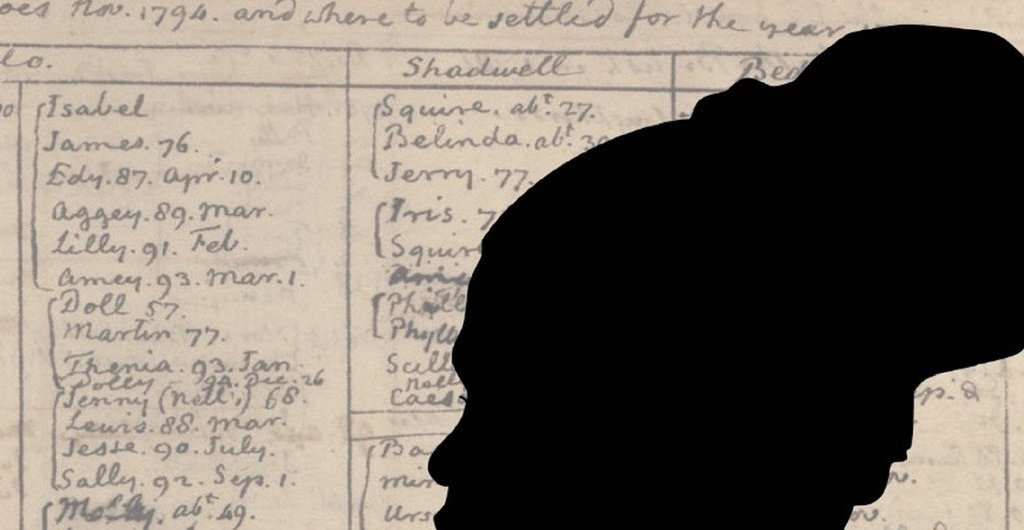 oes Nov. 1794. and where to be settled for the year
lo.
Shadwell
Bed
Isabel
James. 76.
Edy. 87. Apr. 10.
Aggey. 89. Mar.
Lilly. 91. Feb.
Amey. 93. Mar. 1.
Doll 57.
Martin 77.
Thenia. 93. Jan
Dolly - 94. Dec. 26
Jenny (Nell's) 68.
Lewis. 88. Mar.
Jesse. 90. July.
Sally. 92. Sep. 1.
Molly. abt. 49.
Squire. abt. 27.
Belinda. abt. 39
Jerry. 77.
Iris. 7
Squir
Phill
Phyll
Scill
Nell
Caes
Ba
Min
Urs
p. 2
v.
ov.